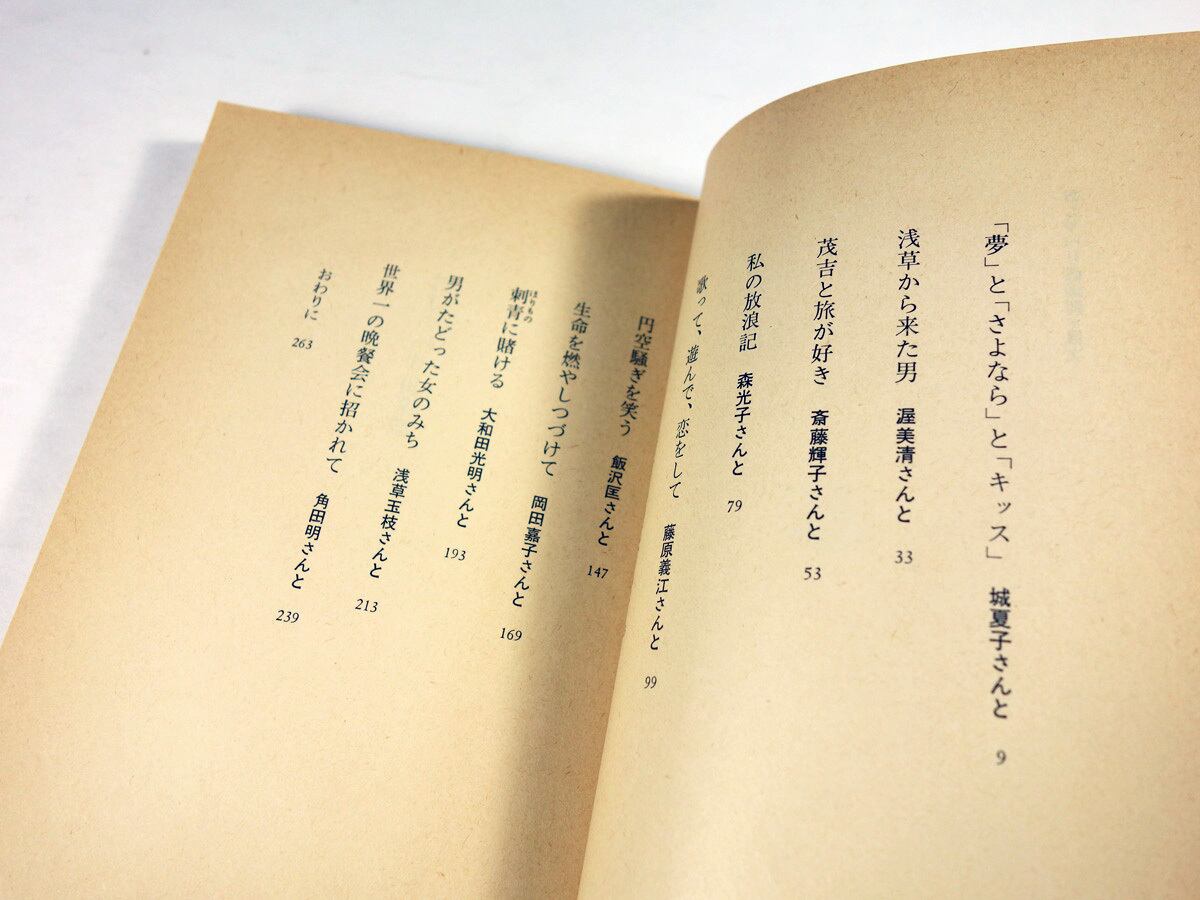 「夢」と「さよなら」と「キッス」 城夏子さんと 9
浅草から来た男 渥美清さんと 33
茂吉と旅が好き 斎藤輝子さんと 53
私の放浪記 森光子さんと 79
歌って、遊んで、恋をして 藤原義江さんと 99
円空騒ぎを笑う 飯沢匡さんと 147
生命を燃やしつづけて 岡田嘉子さんと 169
刺青に賭ける 大和田光明さんと 193
ほりもの
男がたどった女のみち 浅草玉枝さんと 213
世界一の晩餐会に招かれて 角田明さんと 239
おわりに 263